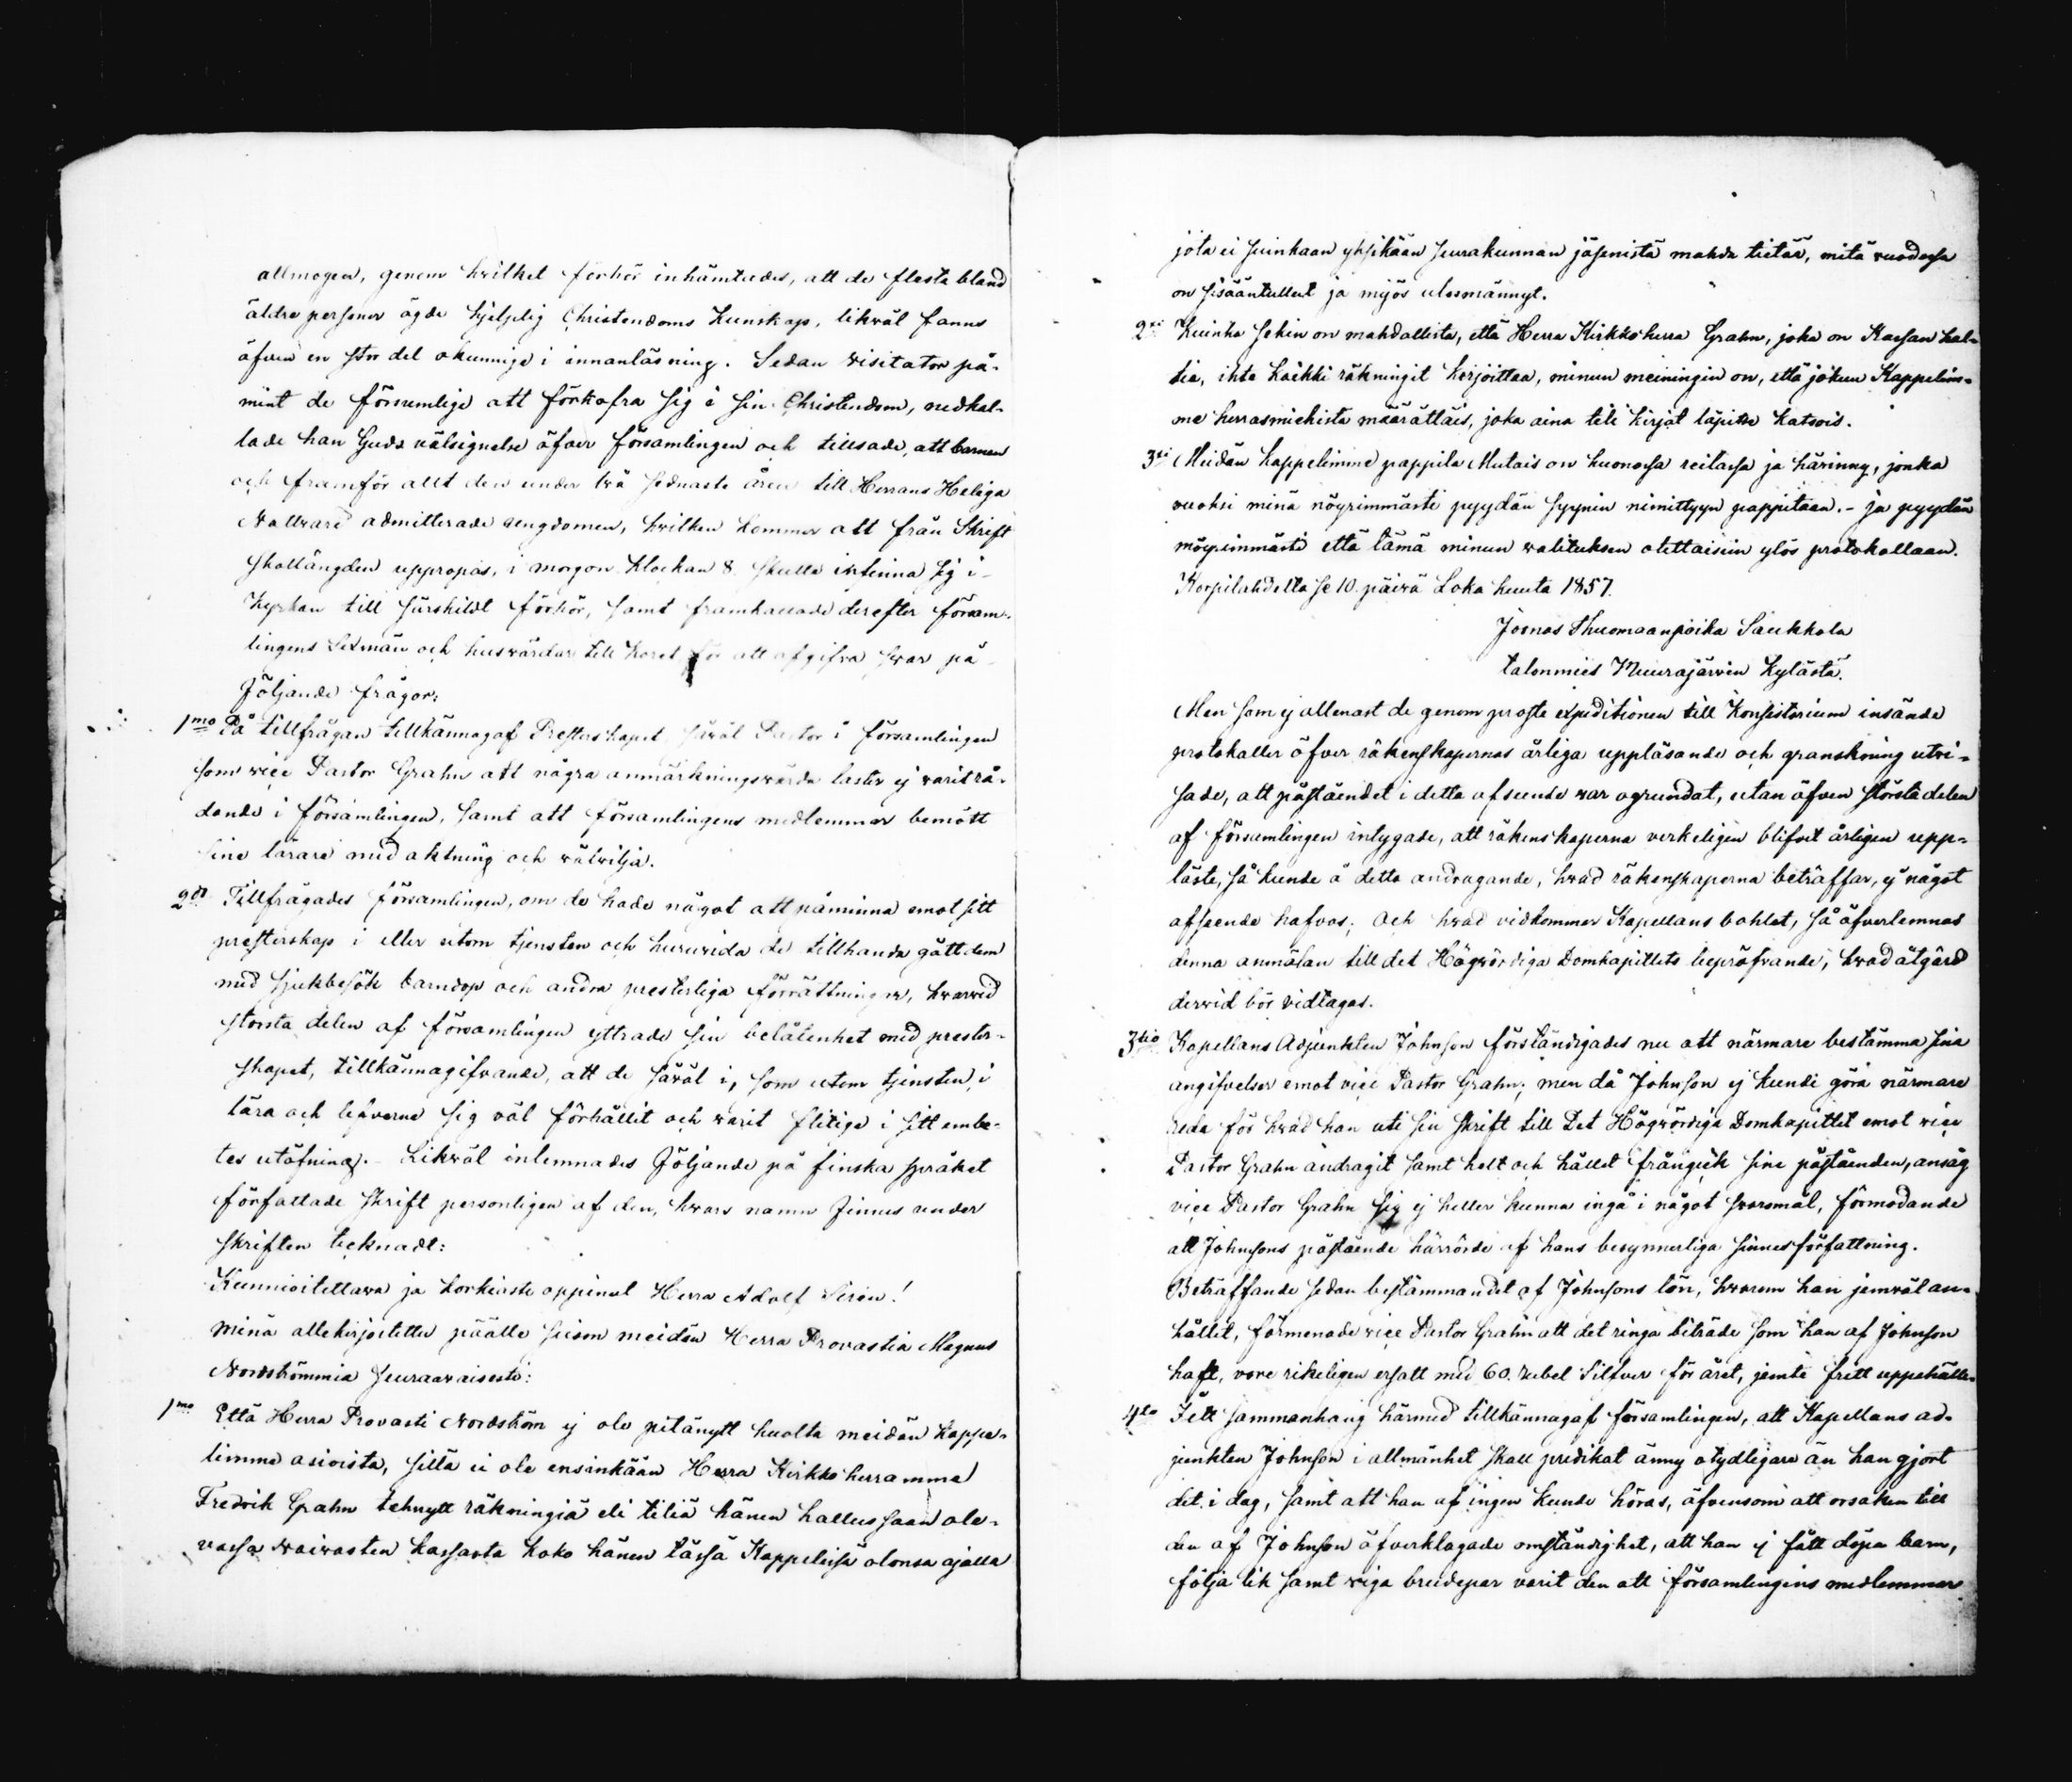 allmogen, genom hvilket förhör inhämtades, att de flesta bland
äldre personer ägde hjelplig Christendoms kunskap, likväl fanns
äfven en stor del okunnige i innanläsning. Sedan Visitator på-
mint de försumlige att förkofra sig i sin Christendom, nedkal-
lade han Guds välsignelse öfver församlingen och tillsade, att barnen
och framför allt den under två sednaste åren till Herrans Heliga
Nattvard admitterade ungdomen, hvilken kommer att från Skrift
skollängden uppropas, i morgon klockan 8 skulle infinna sig i
kyrkan till särskildt förhör, samt framkallade derefter försam-
lingens Sexmän och husvärdar till koret för att afgifva svar på
följande frågor:
1mo På tillfrågan tillkännagaf Presterskapet såväl Pastor i församlingen
som vice Pastor Grahn att några anmärkningsvärda laster ej varit rå-
dande i församlingen, samt att församlingens medlemmar bemött
sine lärare med aktning och välvilja.
2do Tillfrågades församlingen, om de hade något att påminna emot sitt
presterskap i eller utom tjensten och huruvida de tillhanda gått dem
med sjukbesök barndop och andra presterliga förrättningar, hvarvid
största delen af församlingen yttrade sin belåtenhet med prester-
skapet, tillkännagifvande, att de såväl i, som utom tjensten, i
lära och lefverne sig väl förhållit och varit flitige i sitt embe-
tes utöfning. Likväl inlemnades följande på finska språket
författade skrift personligen af den, hvars namn finnes under
skriften tecknadt:
Kunnioitettava ja korkiasti oppinut Herra Adolf Sirén!
Minä allekirjoitettu päälle suison meidän Herra Provastia Magnus
Nordströmmia seuraavaisesti:
1mo Että Herra Provasti Nordström ej ole pitänytt huolta meidän kappe-
limme asioista, sillä ei ole ensinkään Herra Kirkkoherramme
Fredrik Grahn tehnytt räkningiä eli tiliä hänen hallussaan ole-
vassa vaivasten kassasta koko hänen tässä Kappelissa olonsa ajalla
jota ei suinkaan yksikään seurakunnan jäsenistä mahda tietää, mitä vuodessa
on sisääntullut ja myös ulosmännyt.
2xi Kuinka sekin on mahdollista, että Herra Kirkkoherra Grahn, joka on Kassan hal-
tia, itse kaikki räkningit kirjoittaa, minun meiningin on, että jokun Kappelim-
me herrasmiehistä määrättäis, joka aina tili kirjat läpitse katsois.
3xi Meidän kappelimme pappila Mutais on huonossa reilassa ja hävinny, jonka
vuoksi minä nöyrimmästi pyydän syynin nimittyyn pappilaan. - ja pyydän
nöyrimmästi että tämä minun valituksen otettaisiin ylös protokollaan.
Korpilahdella se 10. päivä Loka kuuta 1857.
Joonas Thuomaanpoika Saukkola
talonmies Muurajärvin kylästä.
Men som ej allenast de genom proste expeditionen till Konsistorium insände
protokoller öfver räkenskapernas årliga uppläsande och granskning utvi-
sade, att påståendet i detta afseende var ogrundat, utan äfven största delen
af församlingen intygade, att räkenskaperna verkeligen blifvit årligen upp-
läste, så kunde å detta andragande, hvad räkenskaperna beträffar, ej något
afseende hafvas; och hvad vidkommer Kapellans bohlet, så öfverlemnas
denna anmälan till det Högvördiga Domkapitlets bepröfvande, hvad åtgärd
dervid bör vidtagas.
3tio Kapellans Adjunkten Johnson förständigades nu att närmare bestämma sina
angifvelser emot vice Pastor Grahn; men då Johnson ej kunde göra närmare
reda för hvad han uti sin skrift till Det Högvördiga Domkapitlet emot vice
Pastor Grahn andragit samt helt och hållet frångick sine påståenden, ansåg
vice Pastor Grahn sig ej heller kunna ingå i något svaromål, förmodande
att Johnsons påstående härrörde af hans besynnerliga sinnesförfattning.
Beträffande sedan bestämmandet af Johnsons lön, hvarom han jemväl an-
hållit, förmenade vice Pastor Grahn att det ringa biträde som han af Johnson
haft, vore rikeligen ersatt med 60. rubel Silfver för året, jemte fritt uppehälle.
4to I ett sammanhang härmed tillkännagaf församlingen, att Kapellans ad-
junkten Johnson i allmänhet skall predikat ännu otydligare än han gjort
det i dag, samt att han af ingen kunde höras, äfvensom att orsaken till
den af Johnson öfverklagade omständighet, att han ej fått döpa barn,
följa lik samt viga brudepar varit den att församlingens medlemmar